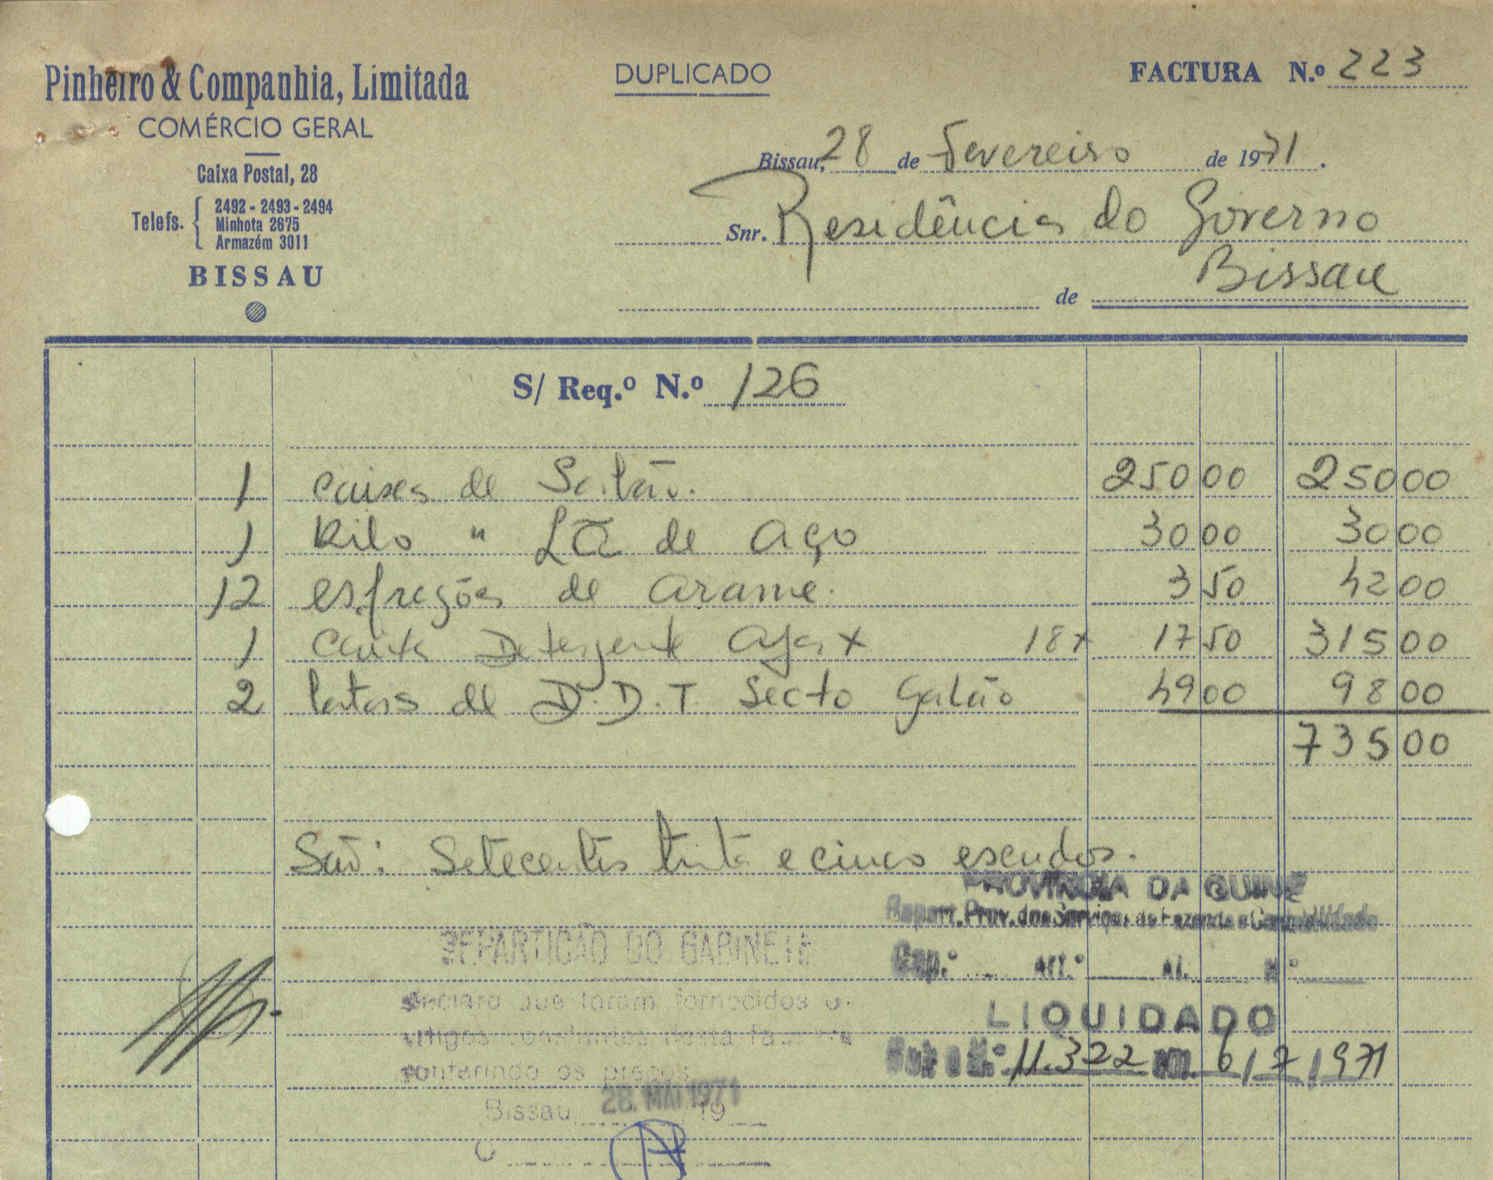 Pinheiro & Companhia, Limitada
COMÉRCIO GERAL
Caixa Postal, 28
Telefs. 2492 - 2493 - 2494
Minhota 2675
Armazém 3011
BISSAU
DUPLICADO
FACTURA N.º 223
Bissau, 28 de Fevereiro de 1971.
Snr. Residência do Governo
de Bissau
S/ Req.º N.º 126
1 caixa de Sabão. 250 00 250 00
1 Kilo " Lã de Aço 30 00 30 00
12 esfregões de arame. 3 50 42 00
1 caixa Detergente Ajax 18x 17 50 315 00
2 latas de D.D.T Secto Galão 49 00 98 00
735 00
São: Setecentos trinta e cinco escudos.
PROVÍNCIA DA GUINÉ
Repart. Prov. dos Serviços de Fazenda e Contabilidade
Cap.º Art.º Al. N.º
LIQUIDADO
11.322 6/7/971
REPARTIÇÃO DO GABINETE
Declaro que foram fornecidos o
artigos constantes nesta factura
conferindo os preços
Bissau, 28. MAI 1971 19
O